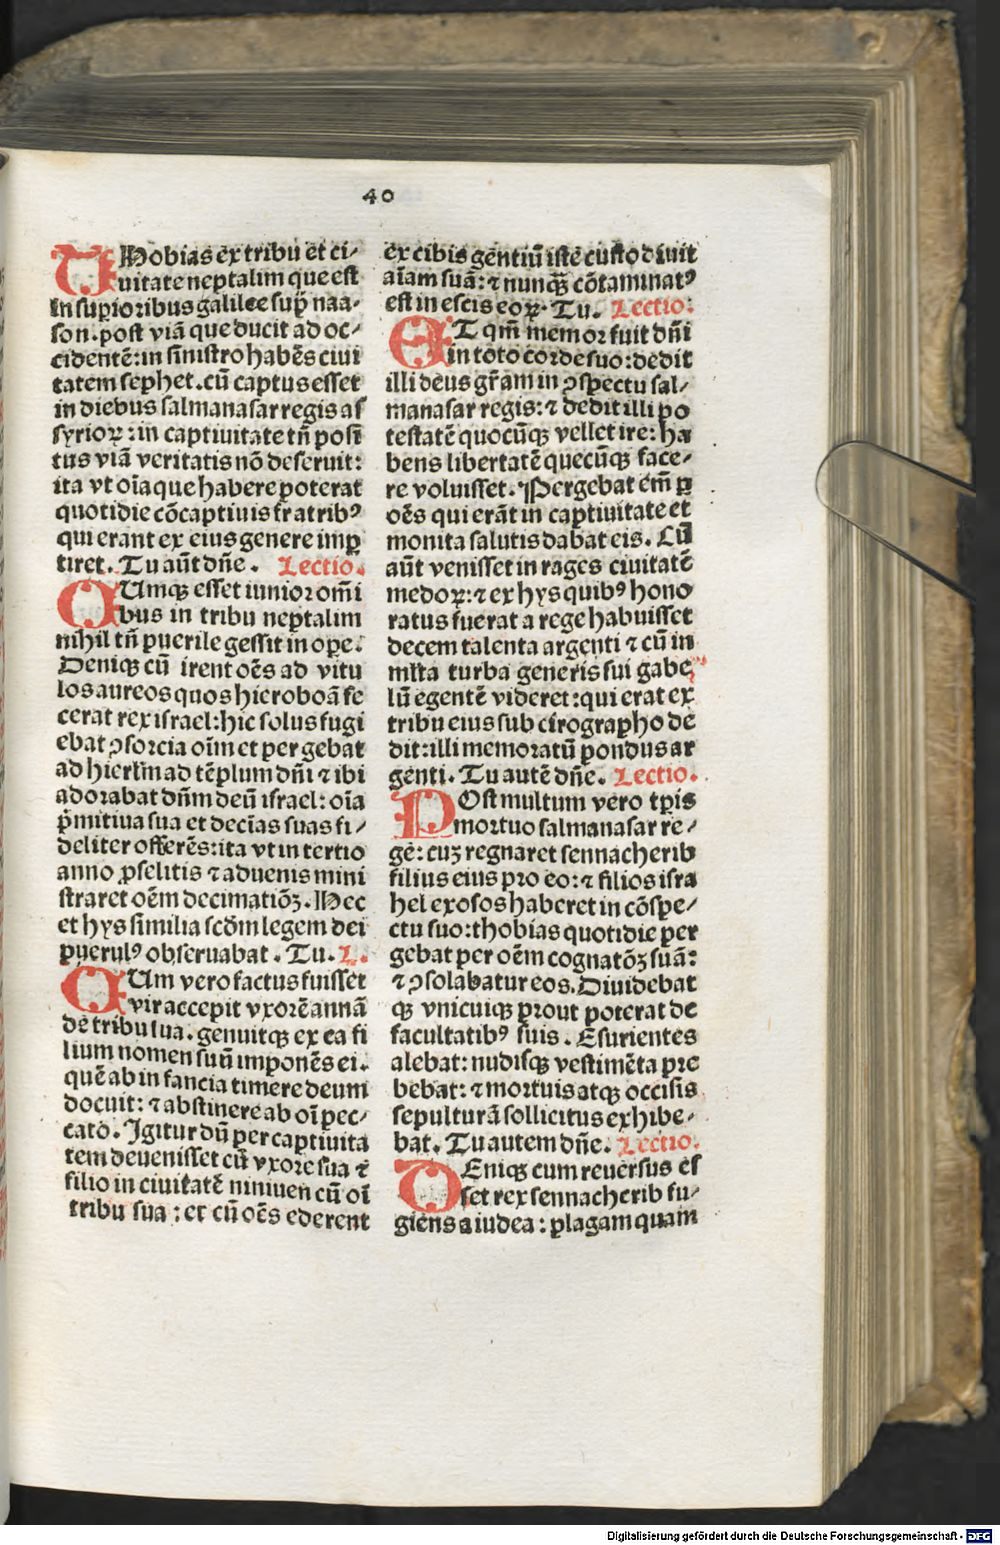 40
THobias ex tribu et ci/
uitate neptalim que est
in supioribus galilee sup̄ naa-
son. post viā que ducit ad oc/
cidentē: in sinistro habēs ciui
tatem sephet. cū captus esset
in diebus salmanasar regis as
syrioꝝ: in captiuitate tn̄ posi
tus viā veritatis nō deseruit:
ita vt oīa que habere poterat
quotidie cōcaptiuis fratribꝰ
qui erant ex eius genere imꝑ
tiret. Tu aūt dn̄e. Lectio.
CUmqꝫ esset iunior om̄i
bus in tribu neptalim
nihil tn̄ puerile gessit in oꝑe.
Deniqꝫ cū irent oēs ad vitu
los aureos quos hieroboā fe
cerat rex israel: hic solus fugi
ebat ꝯsorcia oīm et pergebat
ad hierl̄m ad tēplum dn̄i ⁊ ibi
adorabat dn̄m deū israel: oīa
p̄mitiua sua et decīas suas fi/
deliter offerēs: ita vt in tertio
anno ꝓselitis ⁊ aduenis mini
straret oēm decimatiōꝫ. Hec
et hys similia scd̄m legem dei
puerulꝰ obseruabat. Tu. L.
CUm vero factus fuisset
vir accepit vxorē annā
de tribu sua. genuitqꝫ ex ea fi
lium nomen suū imponēs ei.
quē ab infancia timere deum
docuit: ⁊ abstinere ab oī pec/
cato. Igitur dū per captiuita
tem deuenisset cū vxore sua ⁊
filio in ciuitatē niniuen cū oī
tribu sua: et cū oēs ederent
ex cibis gentiū iste custodiuit
aīam suā: ⁊ nunqꝫ̄ cōtaminatꝰ
est in escis eoꝝ. Tu. Lectio:
ET qm̄ memor fuit dn̄i
in toto corde suo: dedit
illi deus gr̄am in ꝯspectu sal/
manasar regis: ⁊ dedit illi po
testatē quocūqꝫ vellet ire: ha
bens libertatē quecūqꝫ face/
re voluisset. Pergebat em̄ ꝑ
oēs qui erāt in captiuitate et
monita salutis dabat eis. Cū
aūt venisset in rages ciuitatē
medoꝝ: ⁊ ex hys quibꝰ hono
ratus fuerat a rege habuisset
decem talenta argenti ⁊ cū in
ml̄ta turba generis sui gabe
lū egentē videret: qui erat ex
tribu eius sub cirographo de
dit: illi memoratū pondus ar
genti. Tu autē dn̄e. Lectio.
POst multum vero tp̄is
mortuo salmanasar re/
ge: cuꝫ regnaret sennacherib
filius eius pro eo: ⁊ filios isra
hel exosos haberet in cōspe/
ctu suo: thobias quotidie per
gebat per oēm cognatōꝫ suā:
⁊ ꝯsolabatur eos. Diuidebat
qꝫ vnicuiqꝫ prout poterat de
facultatibꝰ suis. Esurientes
alebat: nudisqꝫ vestimēta pre
bebat: ⁊ mortuis atqꝫ occisis
sepulturā sollicitus exhibe-
bat. Tu autem dn̄e. Lectio.
DEniqꝫ cum reuersus es
set rex sennacherib fu/
giens a iudea: plagam quam
Digitalisierung gefördert durch die Deutsche Forschungsgemeinschaft - DFG